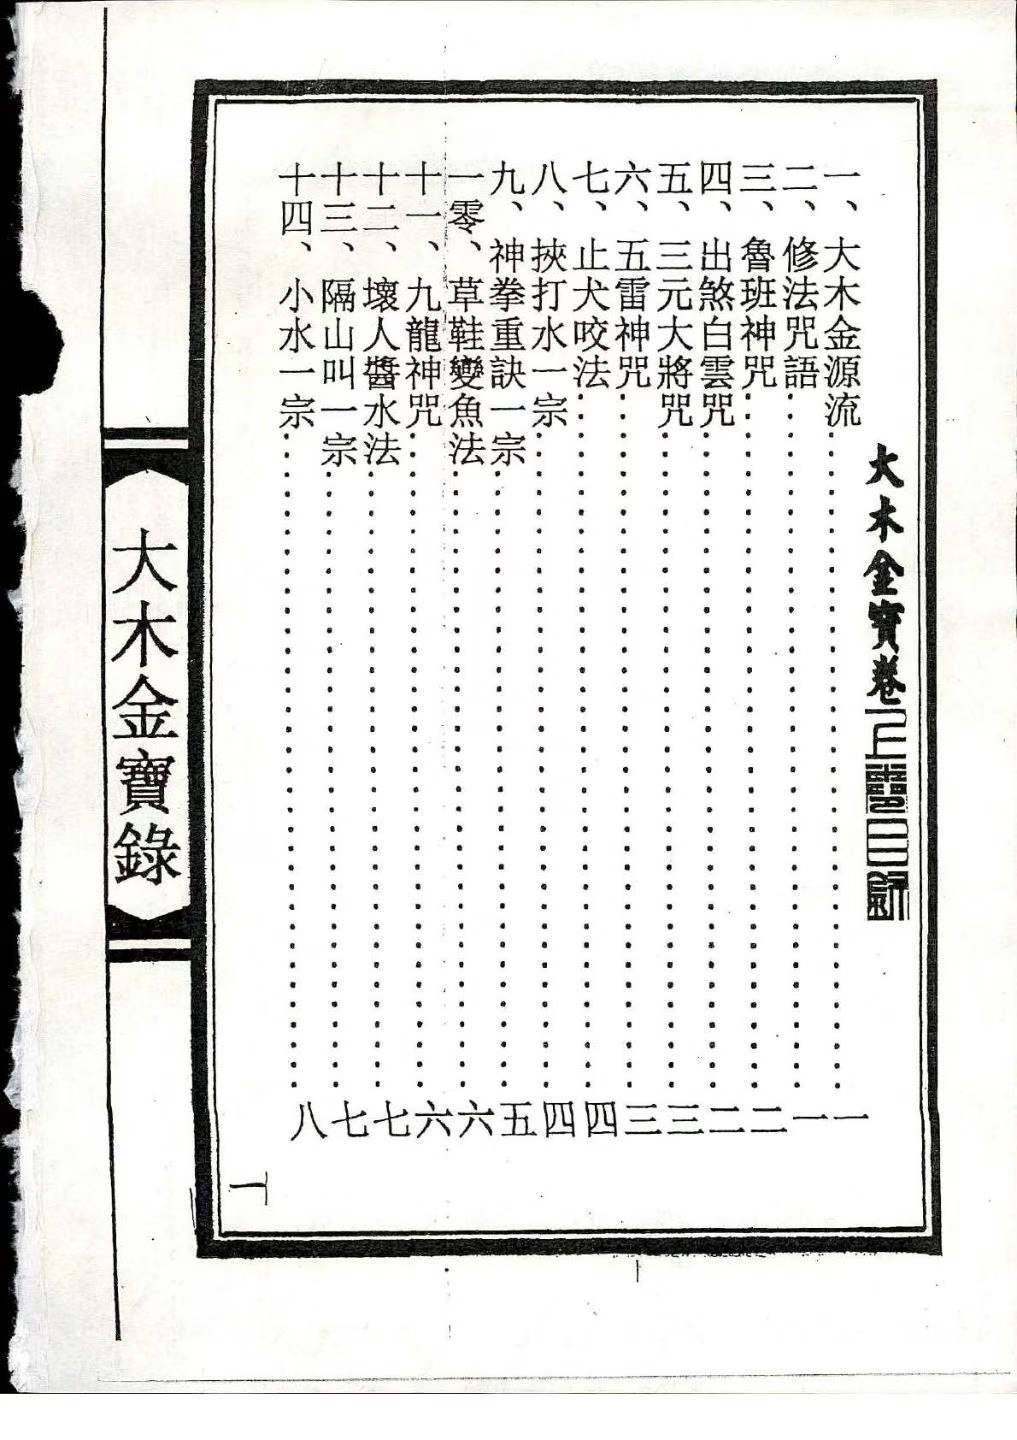 大木金寶卷上冊目錄
一、大木金源流 一
二、修法咒語 一
三、魯班神咒 二
四、出煞白雲咒 二
五、三元大將咒 三
六、五雷神咒 三
七、止犬咬法 四
八、挾打水一宗 四
九、神拳重訣一宗 五
一零、草鞋變魚法 六
十一、九龍神咒 六
十二、壞人醬水法 七
十三、隔山叫一宗 七
十四、小水一宗 八
一
大木金寶錄